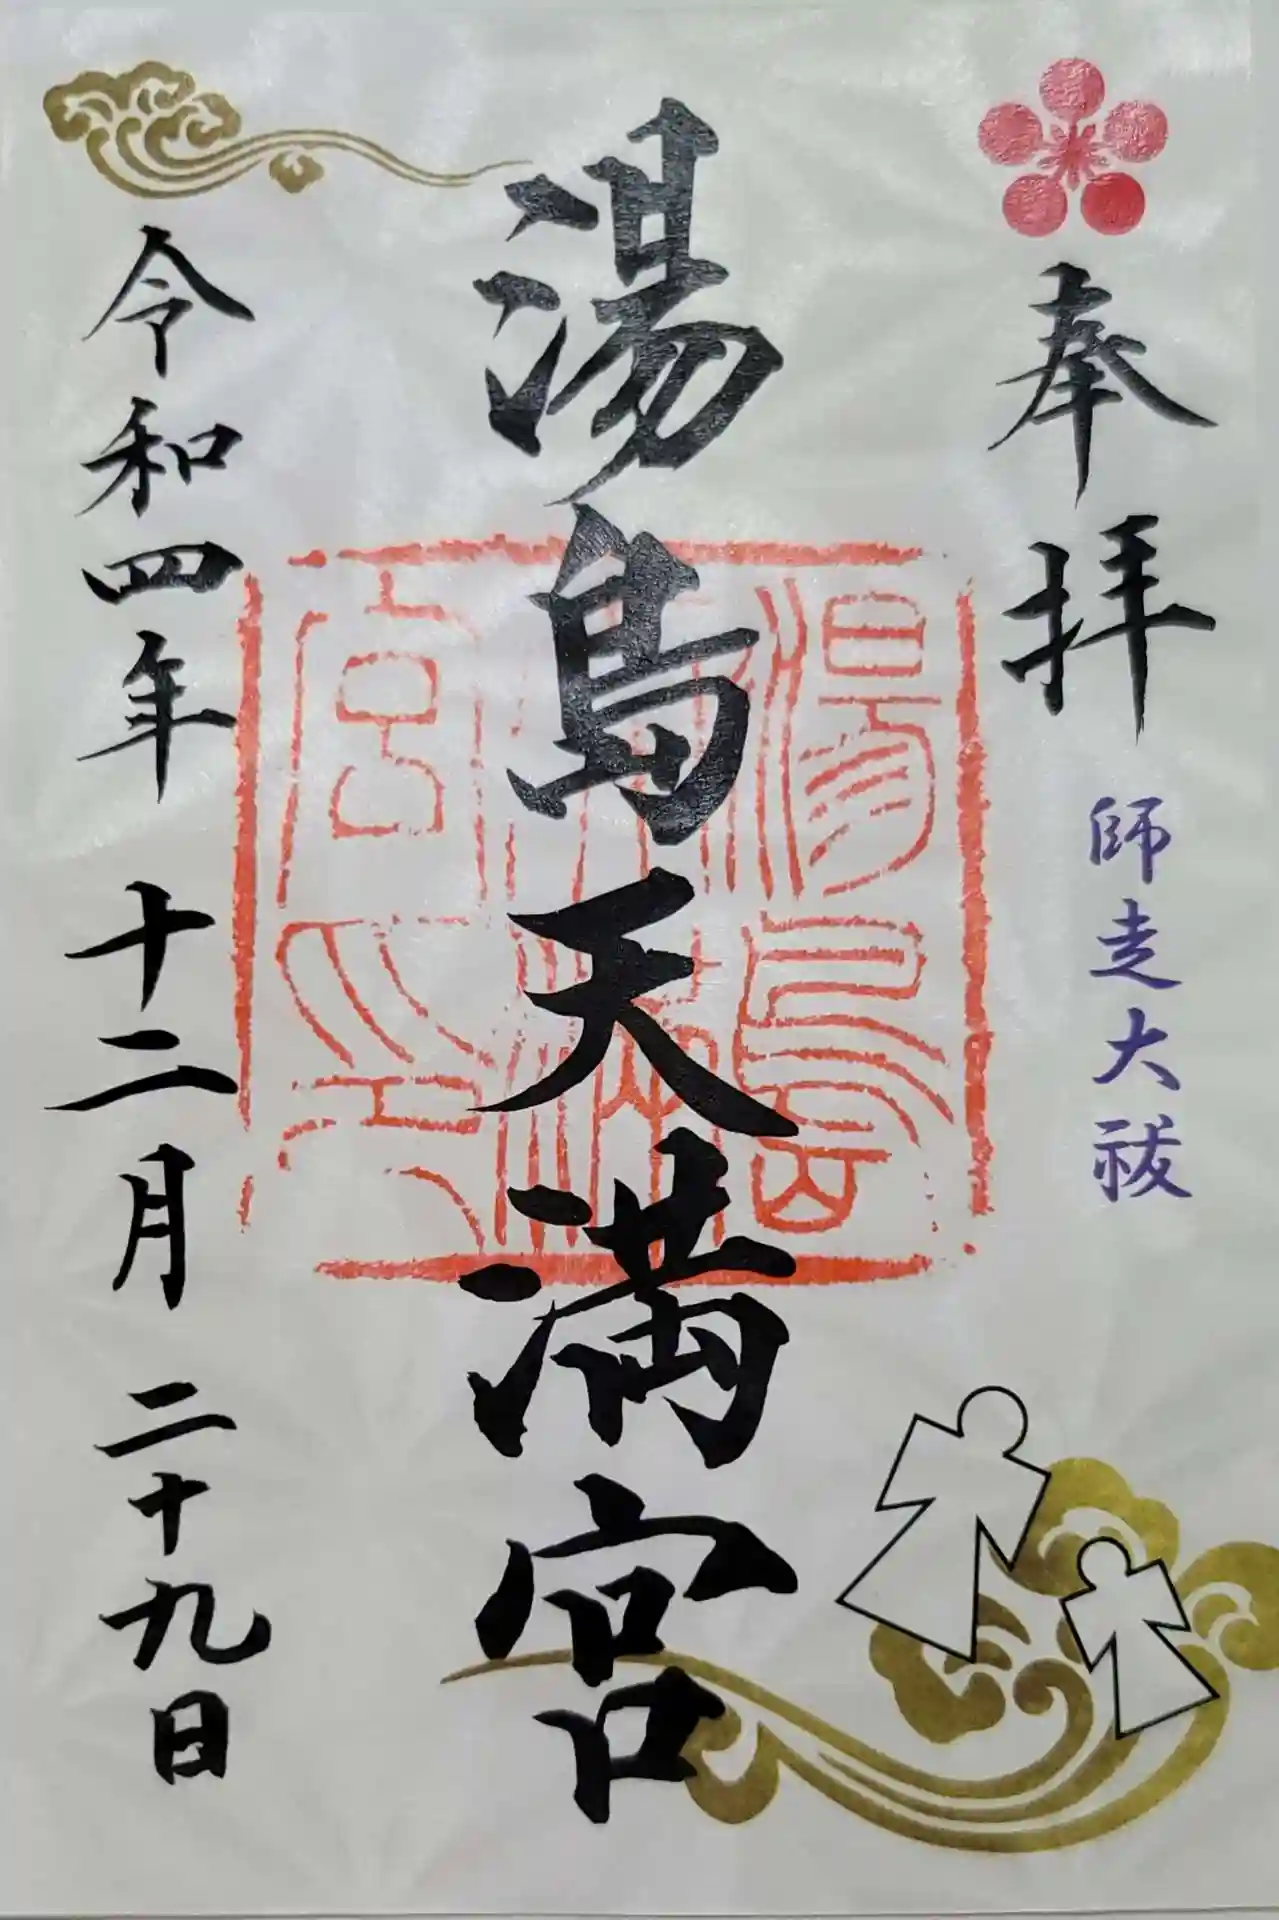 奉拝
師走大祓
湯島天満宮
湯島天神宮之印
令和四年十二月二十九日